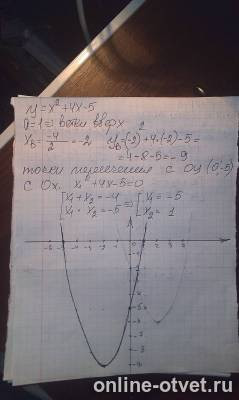 y = x² + 4x - 5
a = 1 ⇒ ветки вверх
x_в = -4/2 = -2 y_в = (-2)² + 4·(-2) - 5 =
= 4 - 8 - 5 = -9
точки пересечения с OY (0; -5)
с Ox, x² + 4x - 5 = 0
[x₁ + x₂ = -4 ⇒ [x₁ = -5
[x₁ · x₂ = -5 [x₂ = 1
online-otvet.ru